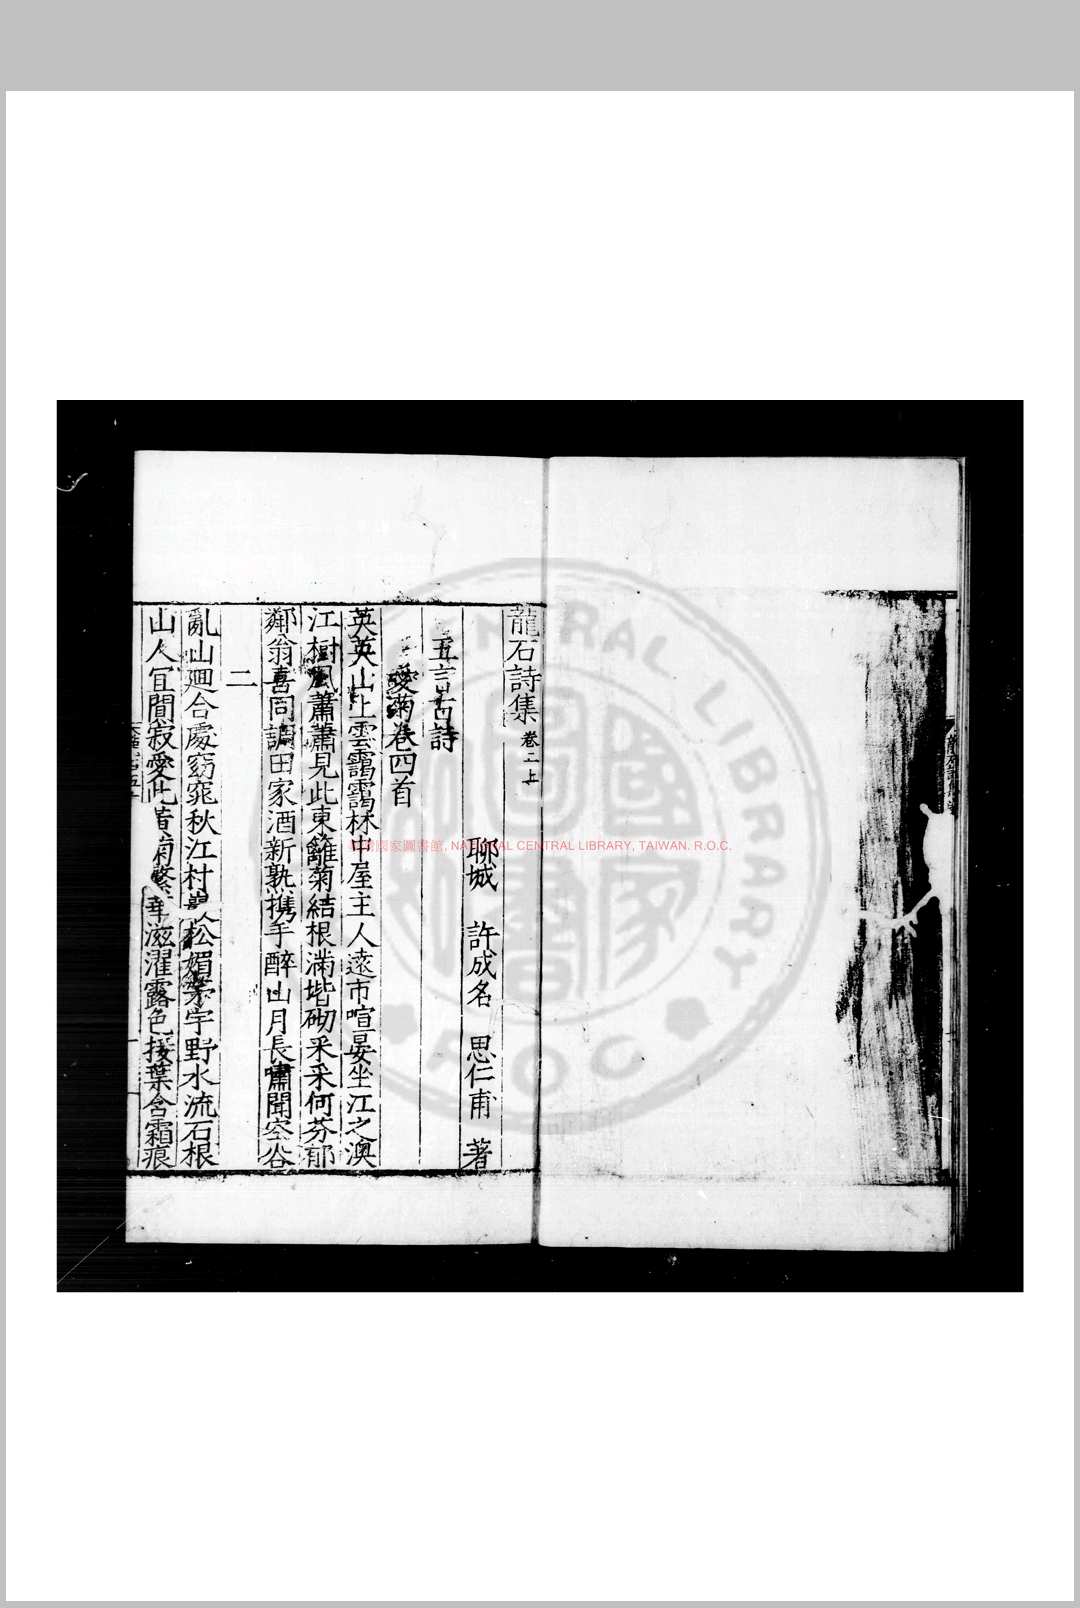 龍石詩集 卷二上
聊城 許成名 思仁甫 著
五言古詩
愛菊卷四首
英英山上雲靄靄林中屋主人遠市喧晏坐江之澳
江樹風蕭蕭見此東籬菊結根滿堦砌采采何芬郁
鄰翁喜同調田家酒新熟携手醉山月長嘯聞空谷
二
亂山廻合處窈窕秋江村 松媚茅宇野水流石根
山人宜閴寂愛此 菊繁華滋濯露色接葉含霜痕
國家圖書館, NATIONAL CENTRAL LIBRARY, TAIWAN. R.O.C.
CENTRAL LIBRARY
R.O.C